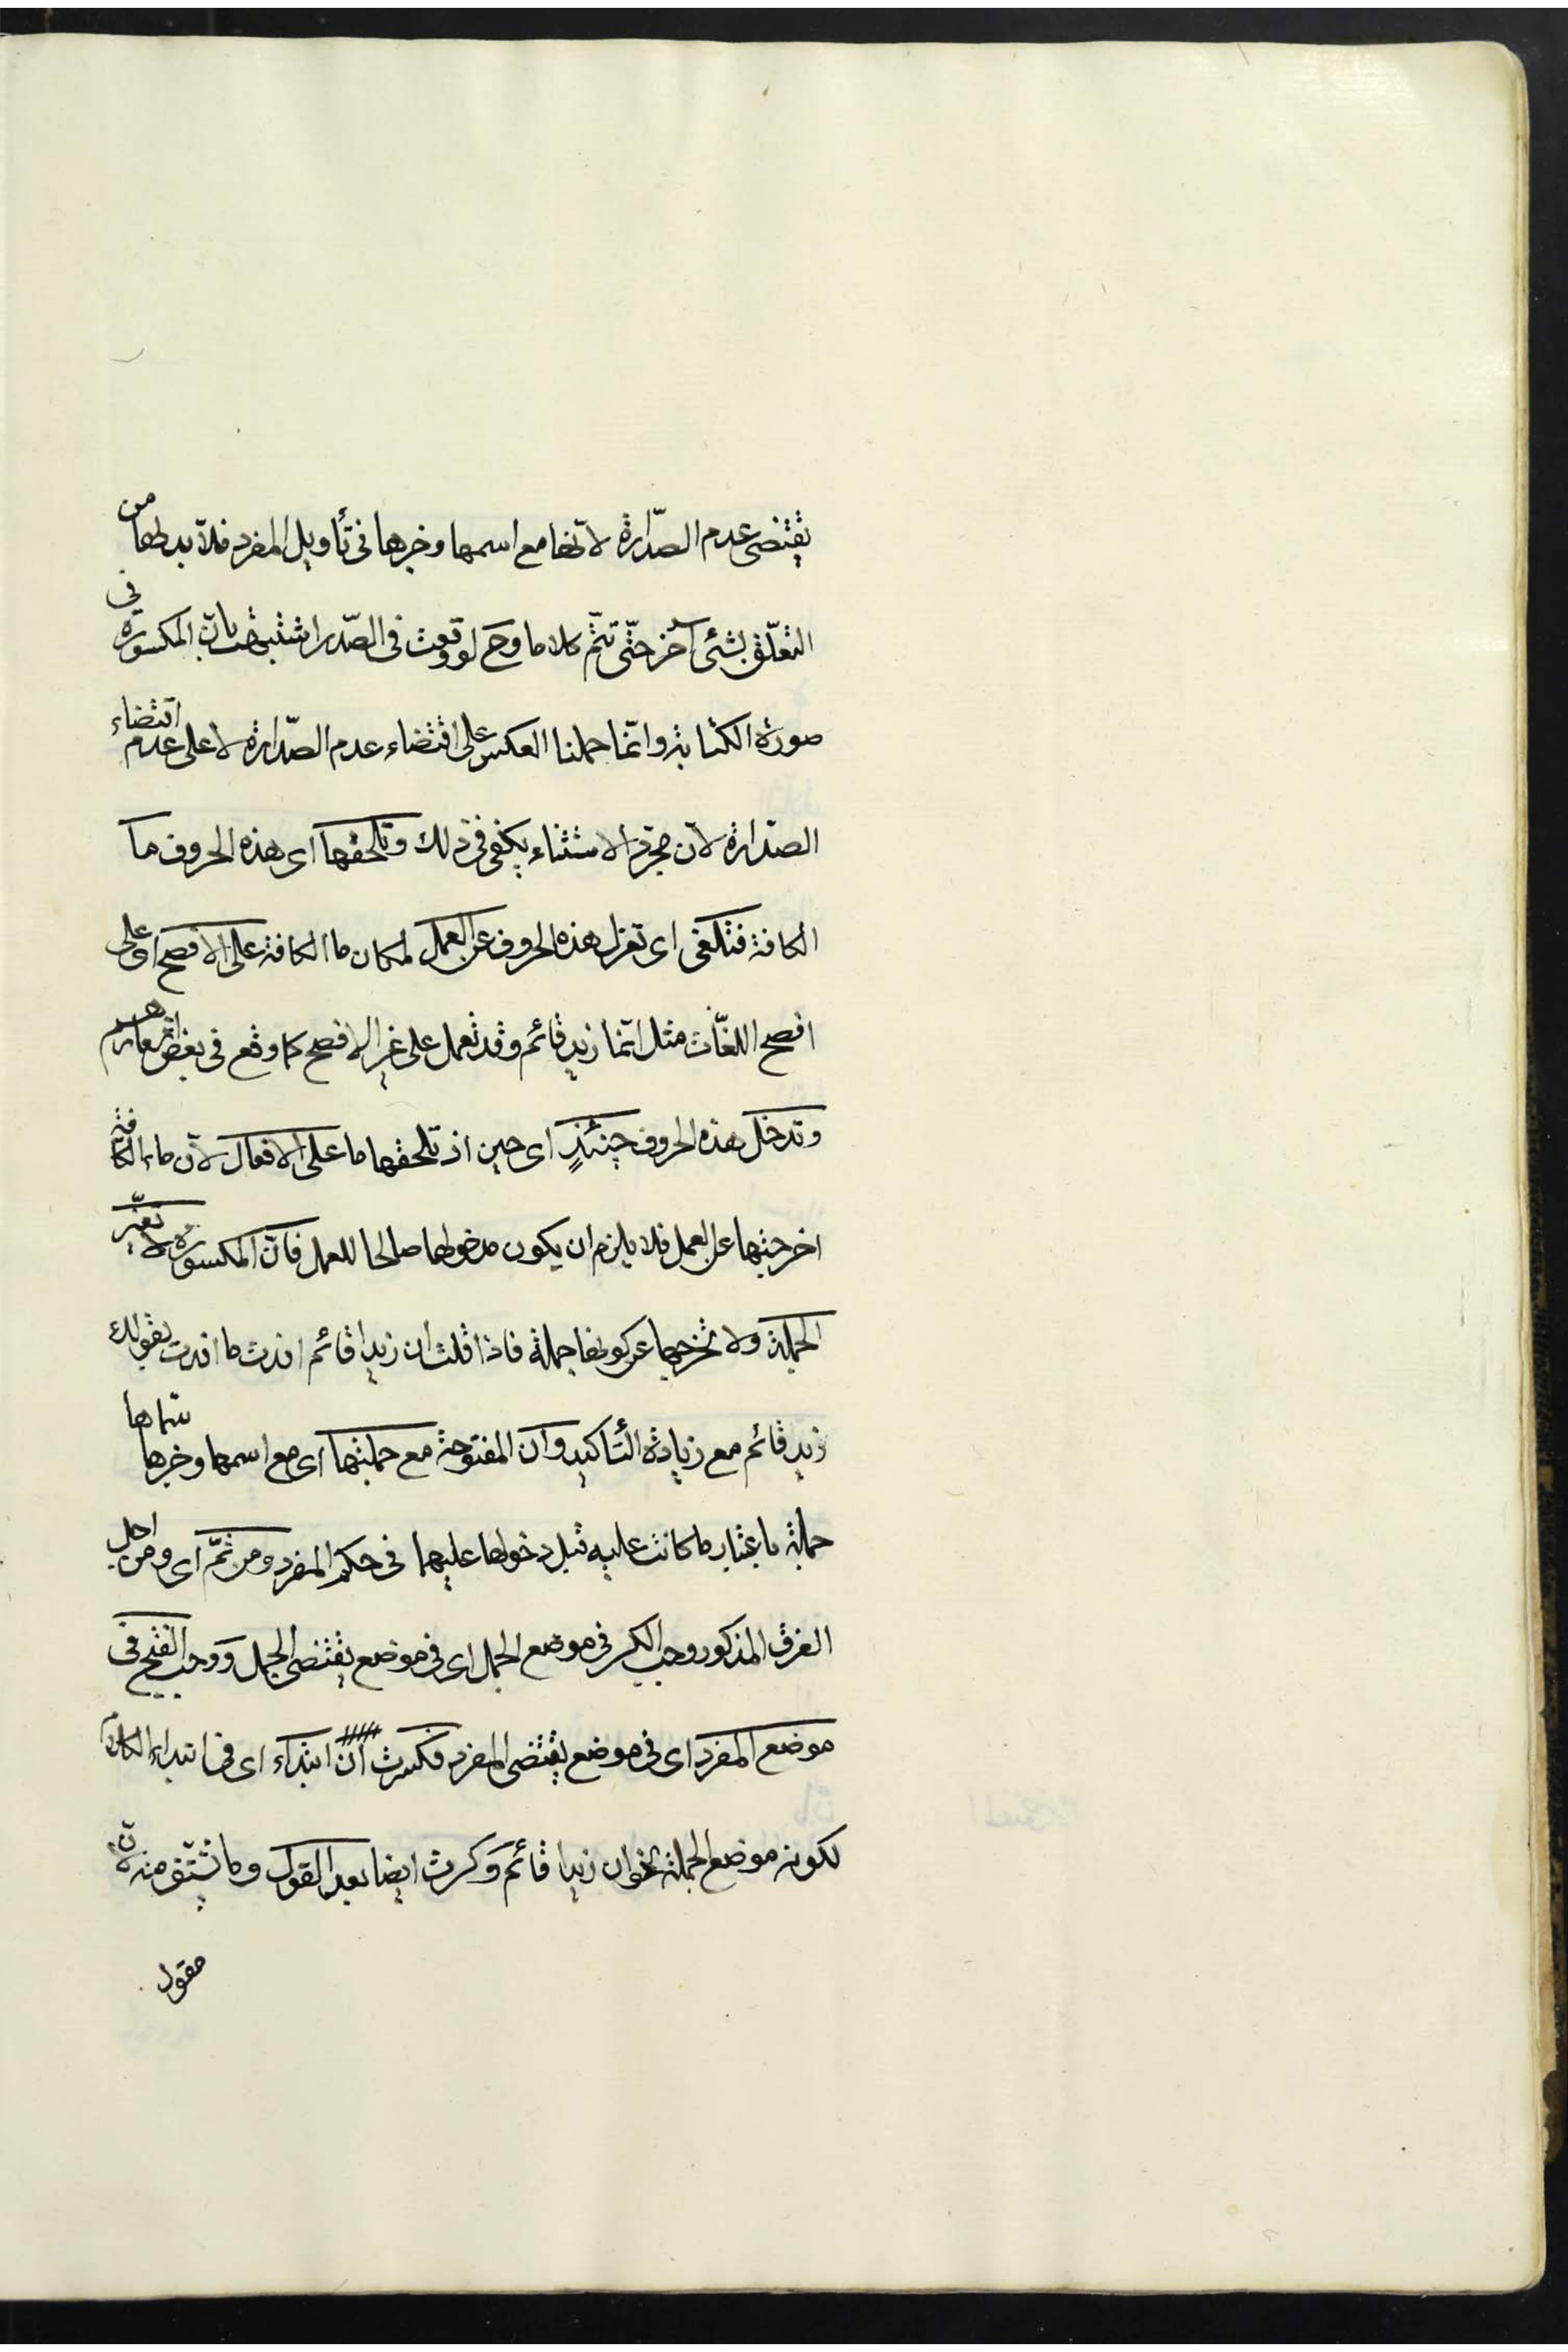 يقتضى عدم الصّدارة لانّها مع اسمها وخبرها فى تأويل المفرد فلا بد لها من
التعلّق بشئ آخر حتّى تتمّ كلاما وح لو وقعت فى الصّدر اشتبهت بانّ المكسورة فى
صورة الكتابة وانّما حملنا العكس على اقتضاء عدم الصّدارة لا على عدم اقتضاء
الصّدارة لانّ مجرّد الاستثناء يكفى فى ذلك وتلحقها اى هذه الحروف ما
الكافة فتلغى اى تعزل هذه الحروف عن العمل لمكان ما الكافة على الافصح اى على
افصح اللغات مثل انّما زيد قائم وقد تعمل على غير الافصح كما وقع فى بعض اشعارهم
وتدخل هذه الحروف حينئذٍ اى حين اذ تلحقها ما على الافعال لانّ ما الكافة
اخرجتها عن العمل فلا يلزم ان يكون مدخولها صالحا للعمل فانّ المكسورة لا تغيّر
الجملة ولا تخرجها عن كونها جملة فاذا قلت ان زيدا قائم افدت ما افدت بقولك
زيد قائم مع زيادة التّأكيد وانّ المفتوحة مع جملتها اى مع اسمها وخبرها سمّاها
جملة باعتبار ما كانت عليه قبل دخولها عليهما فى حكم المفرد ومن ثَمّ اى ومن اجل
الفرق المذكور وجب الكسر فى موضع الجمل اى فى موضع يقتضى الجمل ووجب الفتح فى
موضع المفرد اى فى موضع يقتضى المفرد فكسرت انّ ابتداء اى فى ابتداء الكلام
لكونه موضع الجملة نحو ان زيدا قائم وكسرت ايضا بعد القول وما يشتقّ منه لانّ
مقول